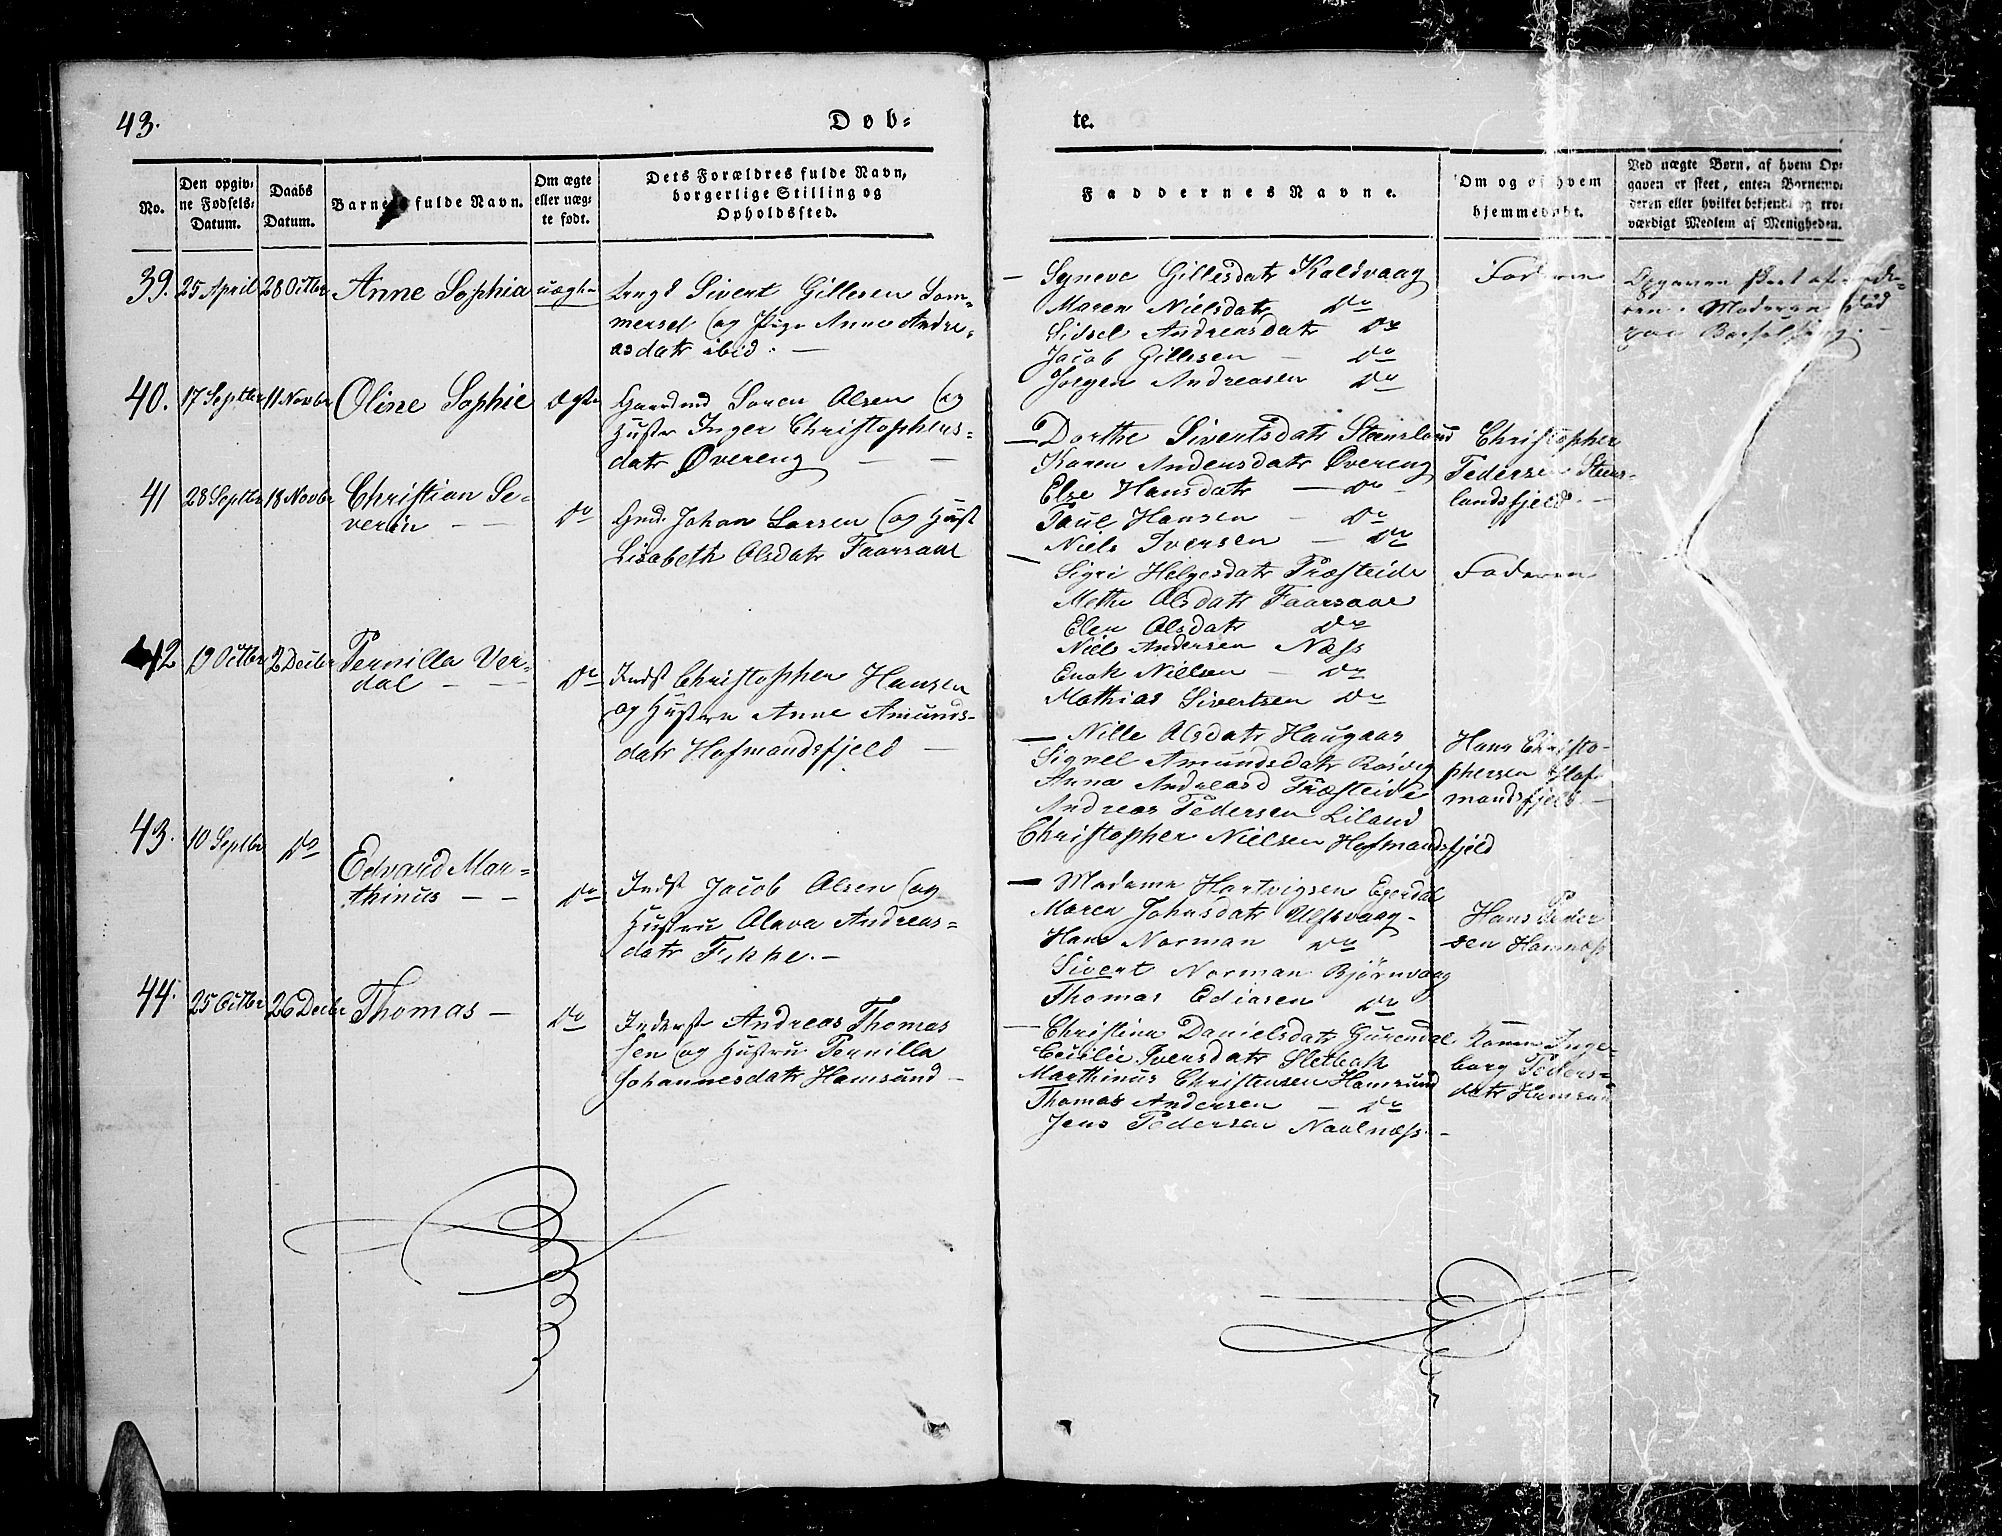 43.
Døb-
te.
No.
Den opgiv-
ne Fødsels-
Datum.
Daabs
Datum.
Barnets fulde Navn.
Om ægte
eller uæg-
te født.
Dets Forældres fulde Navn,
borgerlige Stilling og
Opholdssted.
Faddernes Navne.
Om og af hvem
hjemmedøbt.
Ved uægte Børn, af hvem Op-
gaven er skeet, enten Barnemo-
deren eller hvilket bekjendt og tro-
værdigt Medlem af Menigheden.
39. 25 April 28 Octbr Anne Sophia uægte
Ungk Sivert Gillesen Som-
mersel og Pige Anne Andre-
asdatr ibid. —
— Syneve Gillesdatr Kaldvaag
Maren Nielsdatr Do
Sidsel Andreasdatr Do
Jacob Gillesen — Do
Jørgen Andreasen Do
Faderen
Opgaven skeet af
Moderen død
paa Barselseng. —
40. 17 Septbr 11 Novbr Oline Sophie ægte
Gaardmd Søren Olsen og
Hustr Inger Christophers-
datr Øvereng — —
— Dorthe Sivertsdatr Steensland
Karen Andersdatr Øvereng
Else Hansdatr — Do
Paul Hansen — Do
Niels Iversen — Do
Christopher
Pedersen Steens-
landsfjeld. —
41 28 Septbr 18 Novbr Christian Se-
verin — —
Do
Gmd. Johan Larsen og Hust
Lisabeth Olsdatr Faarsaae
— Sigri Helgesdatr Træsteide
Methe Olsdatr Faarsaae
Elen Olsdatr Do
Niels Andersen Næss
Enok Nielsen — Do
Mathias Sivertsen Do
Faderen
42 19 Octbr 2 Decbr Pernilla Ver-
dal — —
Do
Indst Christopher Hansen
og Hustru Anne Amunds-
datr Hofmandsfjeld —
— Nille Olsdatr Haugaas
Signel Amundsdatr Røsvig
Anna Andreasd Træsteide
Andreas Pedersen Liland
Christopher Nielsen Hofmandsfjeld
Hans Christo-
phersen Hof-
mandsfjeld —
43. 10 Septbr Do
Edvard Mar-
thinus — —
Do
Indst Jacob Olsen og
Hustru Olava Andreas-
datr Fikke. —
— Madame Hartvigsen
Maren Johnsdatr Ulfsvaag —
Hans Norman Do
Sivert Norman Bjørnvaag
Thomas Ediasen Do
Hans Peder
sen Hamnæss
44. 25 Octbr 26 Decbr Thomas —
Do
Inderst Andreas Thomas
sen og Hustru Pernilla
Johannesdatr Hamsund —
— Christina Danielsdatr
Cecilie Iversdatr Sletbak
Marthinus Christensen Hamsund
Thomas Andersen — Do
Jens Pedersen Naalnæss. —
Konen Inge-
borg Peders-
datr Hamsun